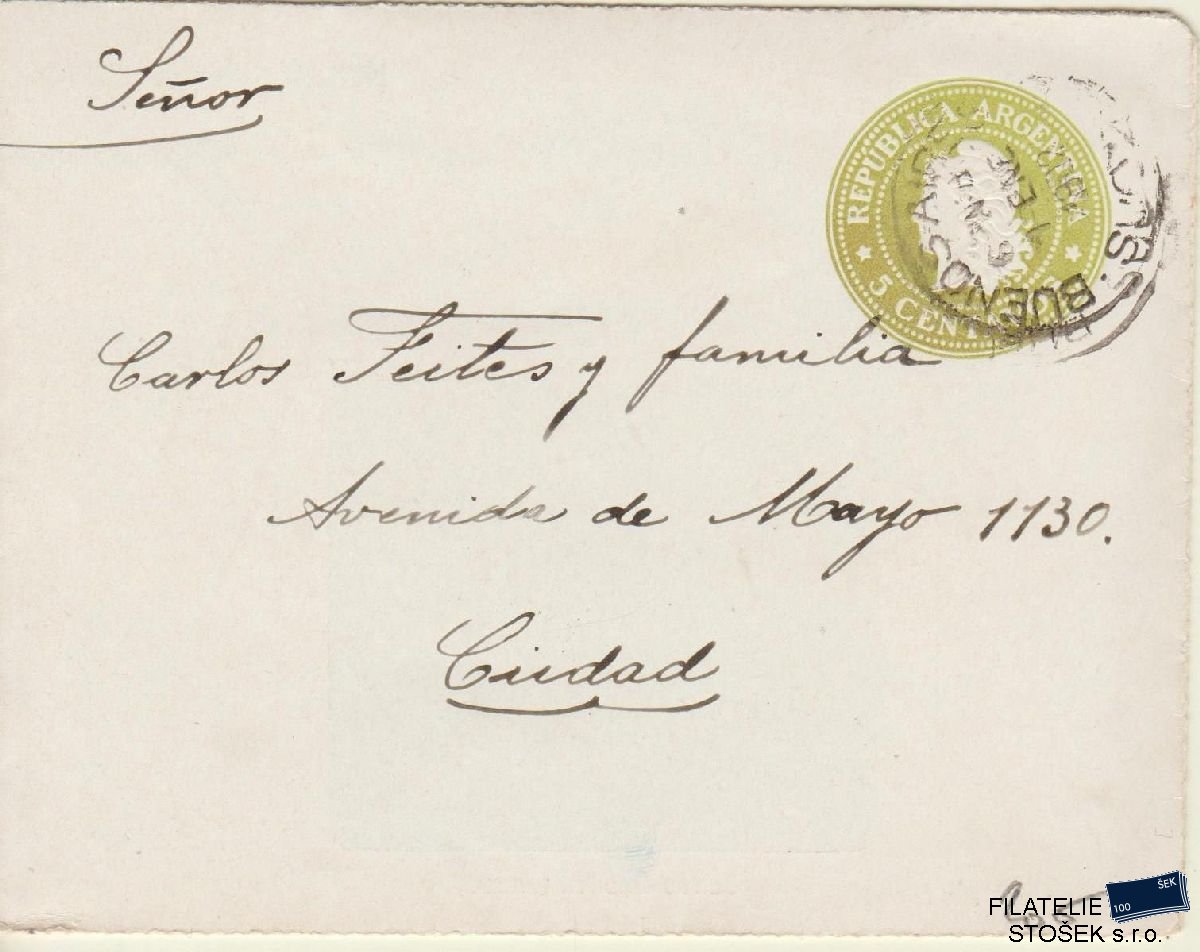 Señor
REPUBLICA ARGENTINA
5 CENTAVOS
BUENOS AIRES
1 ENE
Carlos Feites y familia
Avenida de Mayo 1130.
Ciudad
100 ŠEK
FILATELIE
STOŠEK s.r.o.